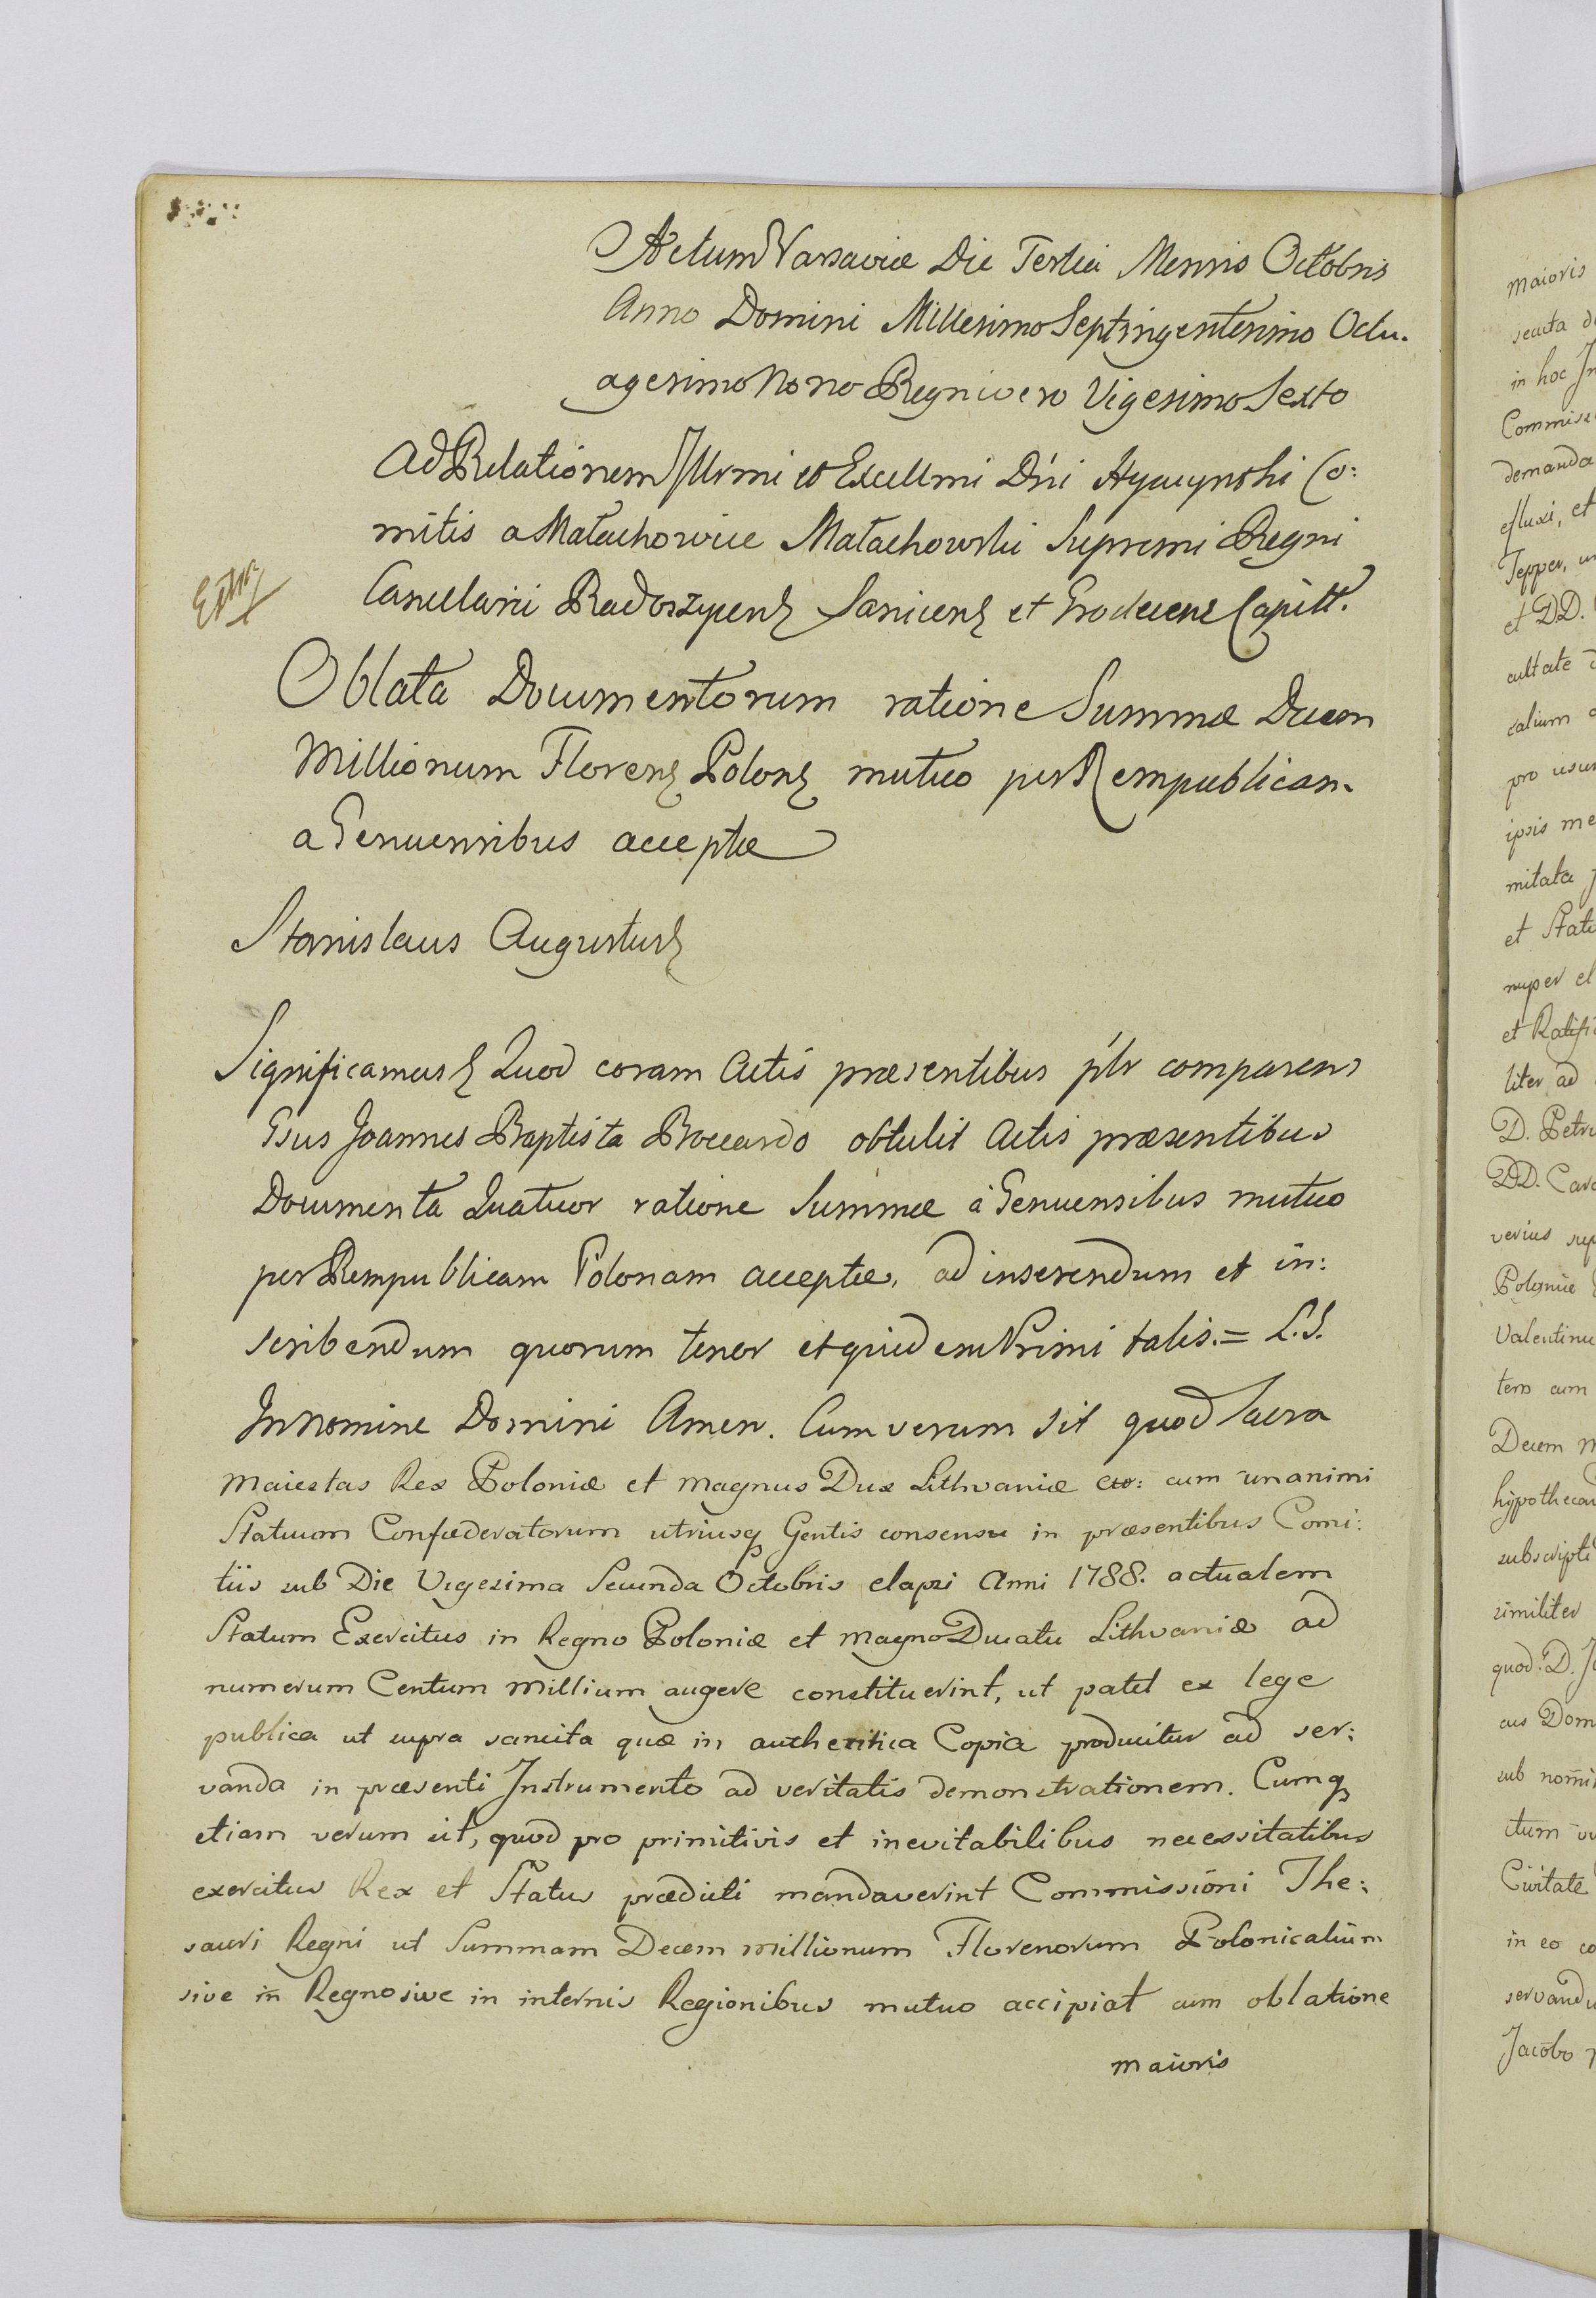 Actum Varsaviæ Die Tertia Mensis Octobris
Anno Domini Millesimo Septingentesimo Octu.
agesimo Nono Regni vero Vigesimo Sexto
Ad Relationem Illrmi et Excellmi Dñi Hyacynthi Co:
mitis a Małachowice Małachowski Supremi Regni
Cancellarii Radoszycens Sanicens et Grodecens Capitt.
Extr
Oblata Documentorum ratione Summæ Decem
Millionum Florens Polons mutuo per Rempublicam
a Genuensibus acceptæ
Stanislaus Augustus
Significamus Quod coram Actis præsentibus plr comparens
Gsus Joannes Baptista Boccardo obtulit Actis præsentibus
Documenta Quatuor ratione Summæ à Genuensibus mutuo
per Rempublicam Polonam acceptæ, ad inserendum et in:
scribendum quorum tenor et quidem Primi talis. = L.S.
In Nomine Domini Amen. Cum verum sit quod Sacra
Maiestas Rex Poloniæ et Magnus Dux Lithvaniæ etc: cum unanimi
Statuum Confœderatorum utriusq Gentis consensu in præsentibus Comi:
tiis sub Die Vigesima Secunda Octobris elapsi Anni 1788. actualem
Statum Exercitus in Regno Poloniæ et Magno Ducatu Lithvaniæ ad
numerum Centum Millium augere constituerint, ut patet ex lege
publica ut supra sancita quæ in authentica Copia producitur ad ser:
vanda in præsenti Instrumento ad veritatis demonstrationem. Cumq
etiam verum sit, quod pro primitivis et inevitabilibus necessitatibus
exercitus Rex et Status prædicti mandaverint Commissioni The:
sauri Regni ut Summam Decem Millionum Florenorum Polonicalium
sive in Regno sive in internis Regionibus mutuo accipiat cum oblatione
maioris
maioris
in hoc
demanda
efluxi, et
Tepper,
et DD.
cultate
calium
pro
ipsis me
mitata
et Statu
nuper el
et Ratifi
liter ad
D. Petru
DD. Car
verius sup
Poloniæ
Valentinu
tero cum
Decem M
hypothecar
subscripti
similiter
quod D. J
cus Dom
sub nomi
itum
Civitate
in eo co
servandu
Jacobo